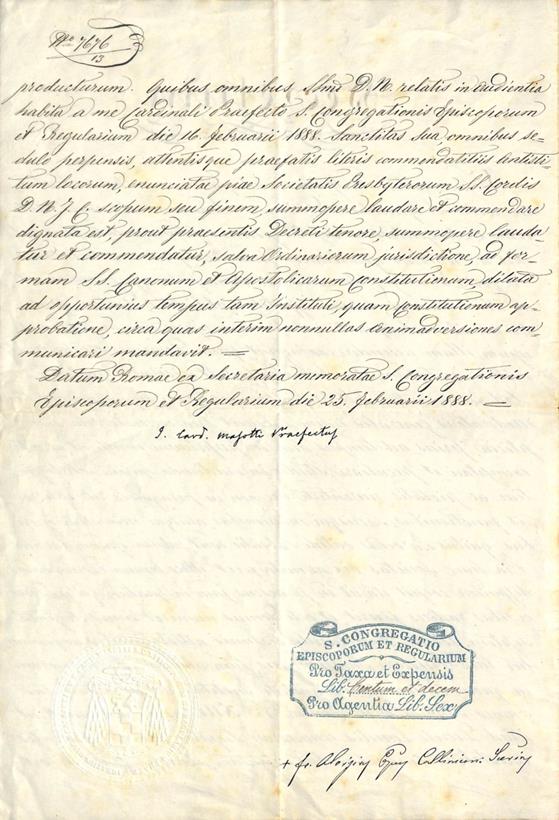 No 7676
13
producturum. Quibus omnibus SSmo D. N. relatis in Audientia
habita a me Cardinali Praefecto S. Congregationis Episcoporum
et Regularium die 16. Februarii 1888. Sanctitas Sua omnibus se-
dulo perpensis, attentisque praefatis literis commendatitiis Antisti-
tum locorum, enunciatae piae Societatis Presbyterorum SS. Cordis
D. N. J. C. scopum seu finem, summopere laudare et commendare
dignata est, prout praesentis Decreti tenore, summopere lauda-
tur et commendatur, salva Ordinariorum jurisdictione, ad for-
mam SS. Canonum et Apostolicarum Constitutionum, dilata
ad opportunius tempus tam Instituti, quam Constitutionum ap-
probatione, circa quas interim nonnullas animadversiones com-
municari mandavit. =
Datum Romae ex Secretaria memoratae S. Congregationis
Episcoporum et Regularium die 25. Februarii 1888. =
I. Card. Masotti Praefectus
S. CONGREGATIO
EPISCOPORUM ET REGULARIUM
Pro Taxa et Expensis
Lib. Centum et decem
Pro Agentia Lib. Sex
+ fr. Aloysius Epus Callinicen: